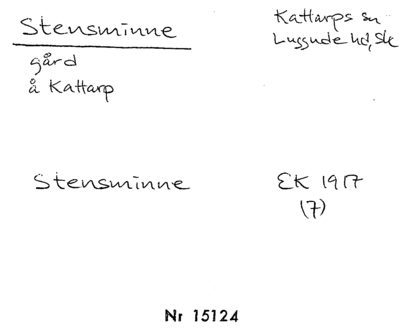 Stensminne
Kattarps sn
Luggude hd, Sk
gård
å Kattarp
Stensminne
EK 1917
(7)
Nr 15124